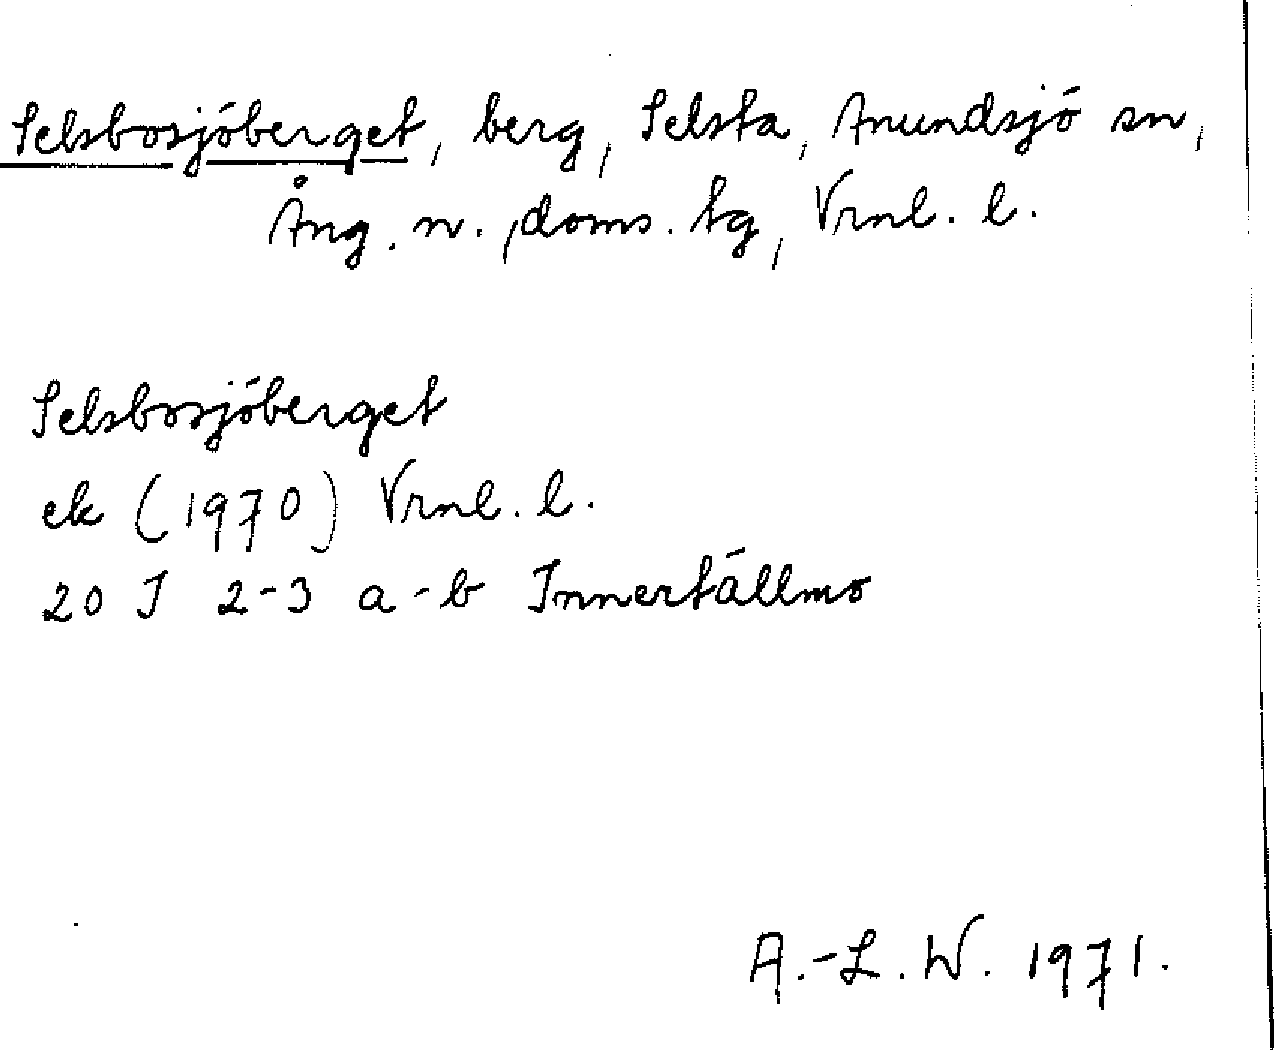 Selsbosjöberget, berg, Selsta, Anundsjö sn,
Ång. n., doms. tg, Vrnl. l.
Selsbosjöberget
ek (1970) Vrnl. l.
20 J 2-3 a-b Innertällmo
A.-L. W. 1971.